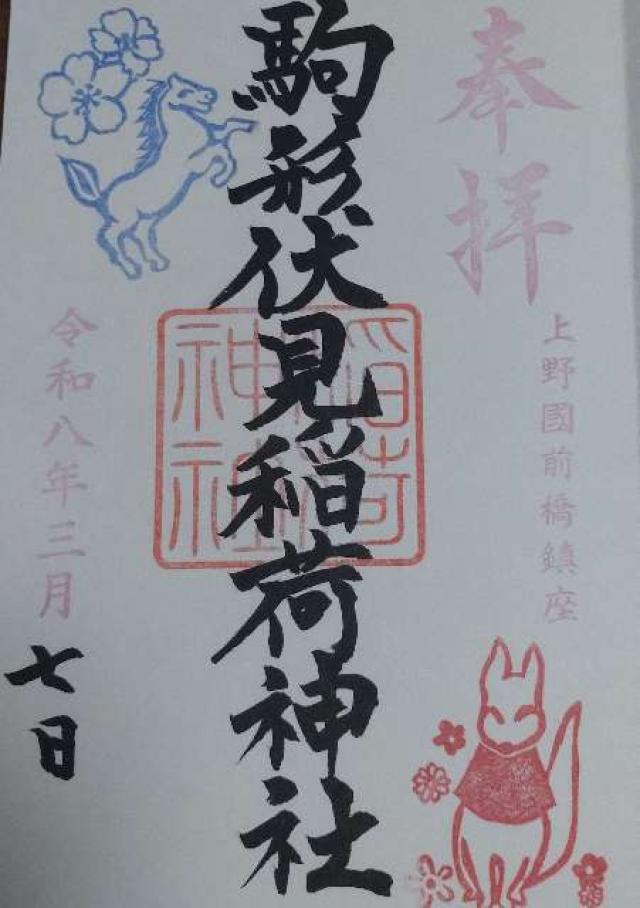 奉拝
上野國前橋鎮座
駒形伏見稲荷神社
稲荷神社
令和八年三月
七日